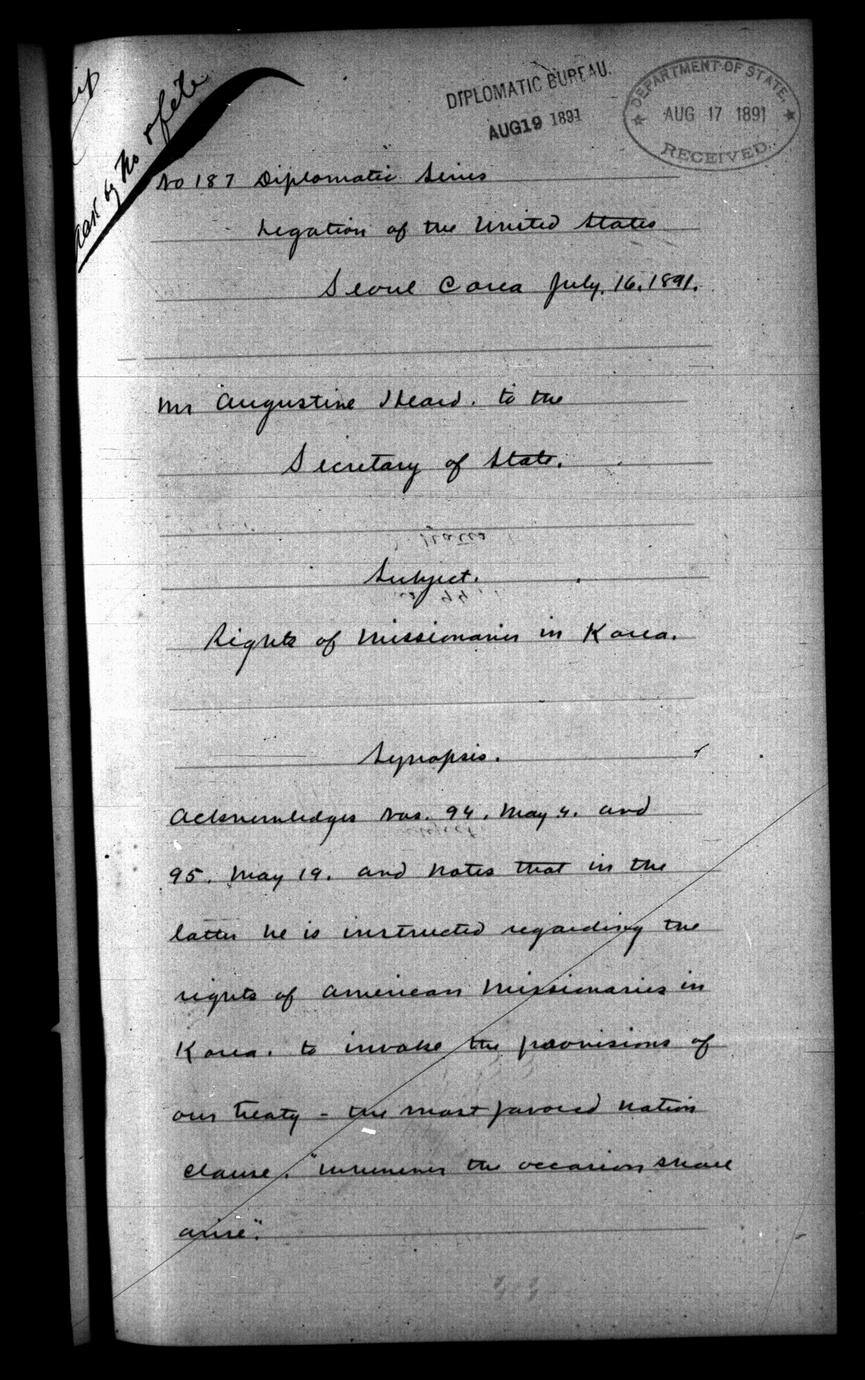 DIPLOMATIC BUREAU.
AUG 19 1891
DEPARTMENT OF STATE.
AUG 17 1891
RECEIVED.
No 187 Diplomatic Series
Legation of the United States
Seoul Corea July. 16. 1891.
Mr Augustine Heard. to the
Secretary of State.
Subject.
Rights of Missionaries in Korea.
Synopsis.
Acknowledges Nos. 94. May 4. and
95. May 19. and notes that in the
latter he is instructed regarding the
rights of American Missionaries in
Korea. to invoke the provisions of
our treaty - the most favored nation
clause. "whenever the occasion shall
arise".